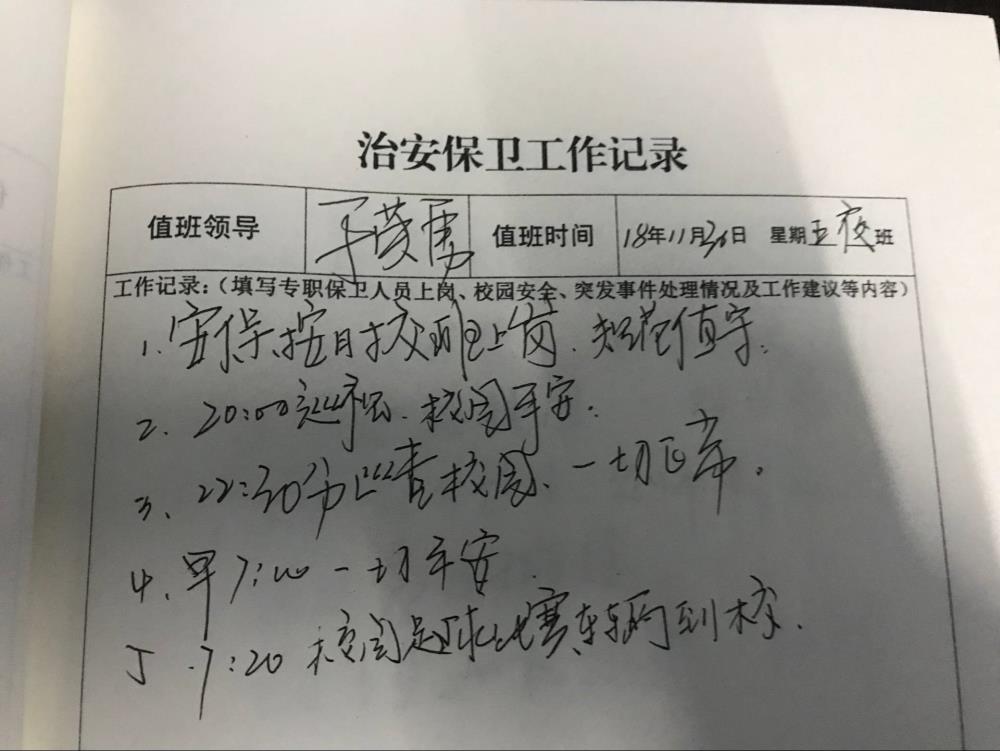 治安保卫工作记录
值班领导 于茂勇 值班时间 18年11月30日 星期五夜班
工作记录：（填写专职保卫人员上岗、校园安全、突发事件处理情况及工作建议等内容）
1、安保按日校班上岗、规范值守。
2、20:00巡视、校园平安。
3、22:30分巡查校园、一切正常。
4、早7:00一切平安
5 .7:20 校园足球比赛车辆到校.